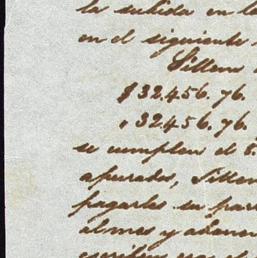 la subida en l
en el siguiente
Sillem
$ 32.456. 76.
" 32.456. 76.
se cumplen el 8.
apurados, Sillem
pagarles su par
almos y adelan
escribir